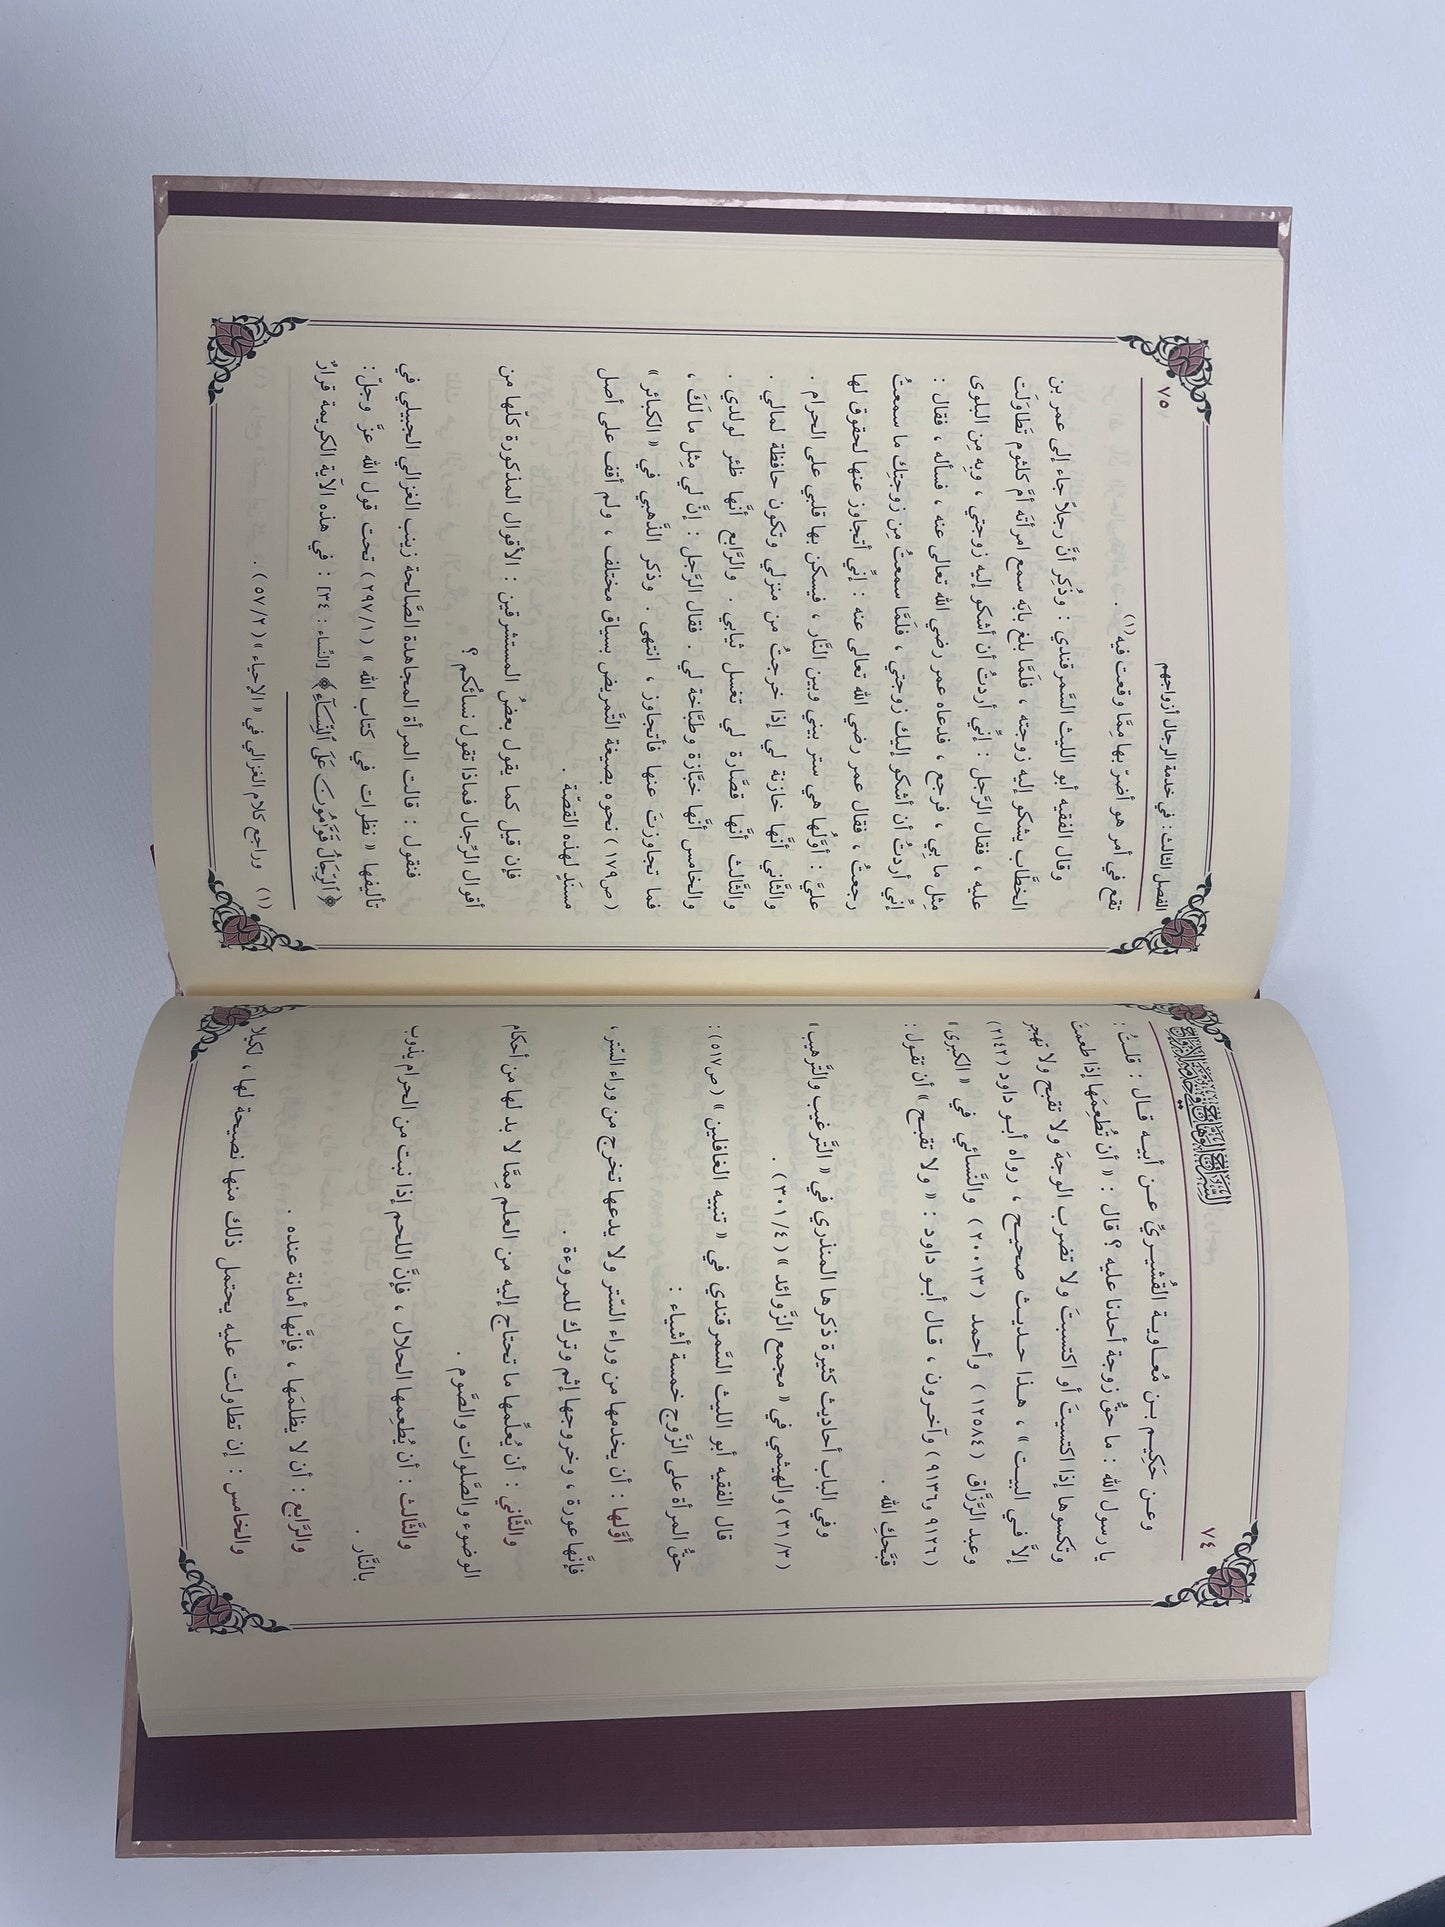 ٧٤
وعـن حَكِيـم بـن مُعـاويـة القُشيـريِّ عـن أبيـه قـال : قلـتُ :
يا رسول الله : ما حقُّ زوجة أحدنا عليه ؟ قال : « أن تُطعِمَها إذا طعمتَ
وتكسوها إذا اكتسيتَ أو اكتسبتَ ولا تضرب الوجهَ ولا تقبح ولا تهجر
إلاَّ فـي البيـت » ، هـذا حـديـث صحيـح ، رواه أبـو داود ( ٢١٤٢ )
وعبد الرَّزَّاق ( ١٢٥٨٤ ) وأحمد ( ٢٠٠١٣ ) والنَّسائي في « الكبرى »
( ٩١٢٦ و٩١٣٦ ) وآخـرون ، قـال أبـو داود : « ولا تقبح » أن تقـول :
قبَّحكِ الله .
وفي الباب أحاديث كثيرة ذكرها المنذري في « التَّرغيب والتَّرهيب »
( ٣١/٣ ) والهيثمي في « مجمع الزَّوائد » ( ٣٠١/٤ ) .
قال الفقيه أبو الليث السَّمرقندي في « تنبيه الغافلين » ( ص٥١٧ ) :
حقُّ المرأة على الزَّوج خمسة أشياء :
أوَّلها : أن يخدمها من وراء السّتر ولا يدعها تخرج من وراء السّتر ،
فإنَّها عورة ، وخروجها إثم وترك للمروءة .
والثَّاني : أن يُعلِّمها ما تحتاج إليه من العلم مِمَّا لا بد لها من أحكام
الوضوء والصَّلوات والصَّوم .
والثَّالث : أن يُطعِمها الحلال ، فإنَّ اللحم إذا نبت من الحرام يذوب
بالنَّار .
والرَّابع : أن لا يظلمَها ، فإنَّها أمانة عنده .
والخامس : إن تطاولت عليه يحتمل ذلك منها نصيحة لها ، لكيلا
الفصل الثالث: في خدمة الرجال أزواجهم
٧٥
تقع في أمر هو أضرّ بها مِمَّا وقعت فيه(١) .
وقال الفقيه أبو الليث السَّمرقندي : وذُكِر أنَّ رجلاً جاء إلى عمر بن
الخطَّاب يشكو إليه زوجته ، فلَمَّا بلغ بابَه سمع امرأتَه أمَّ كلثوم تَطاولَت
عليه ، فقال الرَّجل : إنِّي أردتُ أن أشكو إليه زوجتي ، وبِه مِن البلوى
مِثل ما بِي ، فرجع ، فدعاه عمر رضي الله تعالى عنه ، فسأله ، فقال :
إنِّي أردتُ أن أشكو إليك زوجتي ، فلَمَّا سمعتُ مِن زوجتِك ما سمعتُ
رجعتُ ، فقال عمر رضي الله تعالى عنه : إنِّي أتجاوز عنها لحقوق لها
عليَّ : أوَّلُها هي ستر بيني وبين النَّار ، فيسكن بها قلبي على الحرام .
والثَّاني أنَّها خازنة لي إذا خرجتُ من منزلي وتكون حافظة لمالي .
والثَّالث أنَّها قصَّارة لي تغسل ثيابي . والرَّابع أنَّها ظئر لولدي .
والخامس أنَّها خبَّازة وطبَّاخة لي . فقال الرَّجل : إنَّ لي مثل ما لَكَ ،
فما تجاوزتَ عنها فأتجاوز ، انتهى . وذكر الذَّهبي في « الكبائر »
( ص١٧٩ ) نحوه بصيغة التَّمريض بسياق مختلف ، ولم أقف على أصل
مسنَدٍ لهذه القصّة .
فإن قيل كما يقول بعضُ المستشرقين : الأقوال المذكورة كلّها من
أقوال الرِّجال فماذا تقول نسائُكم ؟
فنقول : قالت المرأة المجاهدة الصَّالحة زينب الغزالي الجبيلي في
تأليفها « نظرات في كتاب الله » ( ٢٩٧/١ ) تحت قول الله عزَّ وجلّ :
﴿ ٱلرِّجَالُ قَوَّٰمُونَ عَلَى ٱلنِّسَآءِ ﴾ [النّساء : ٣٤] : في هذه الآية الكريمة قرارٌ
(١) وراجع كلام الغزالي في « الإحياء » ( ٥٧/٢ ) .